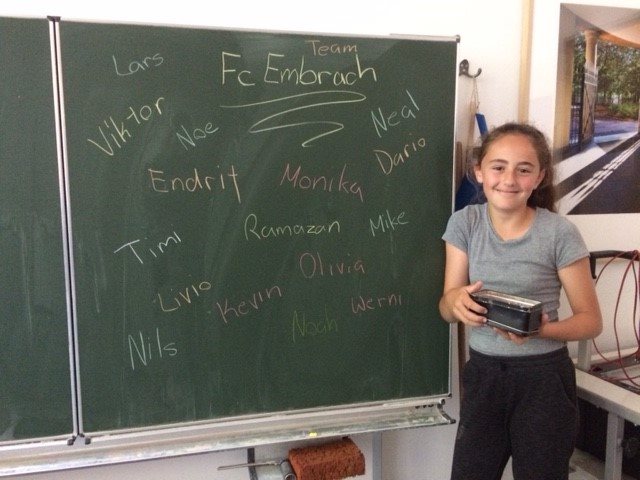 Team
Fc Embrach
Lars
Viktor
Noe
Neal
Dario
Endrit
Monika
Ramazan
Mike
Timi
Olivia
Livio
Kevin
Werni
Noah
Nils